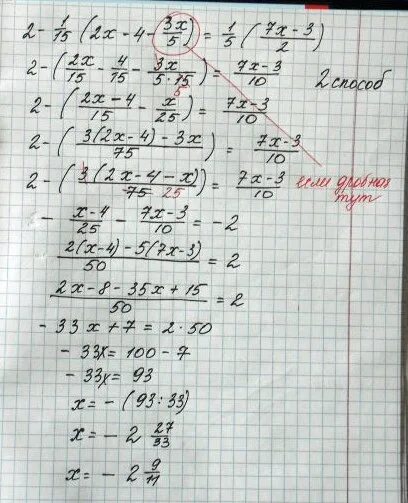 2 - 1/15 (2x - 4 - 3x/5) = 1/5 (7x-3/2)
2 - (2x/15 - 4/15 - 3x/5·15) = 7x-3/10 2 способ
5
2 - (2x-4/15 - x/25) = 7x-3/10
2 - (3(2x-4) - 3x/75) = 7x-3/10
2 - (3(2x-4-x)/75 25) = 7x-3/10 если дробная
тут
- x-4/25 - 7x-3/10 = -2
2(x-4) - 5(7x-3)/50 = 2
2x - 8 - 35x + 15/50 = 2
- 33x + 7 = 2·50
- 33x = 100 - 7
- 33x = 93
x = - (93:33)
x = - 2 27/33
x = - 2 9/11